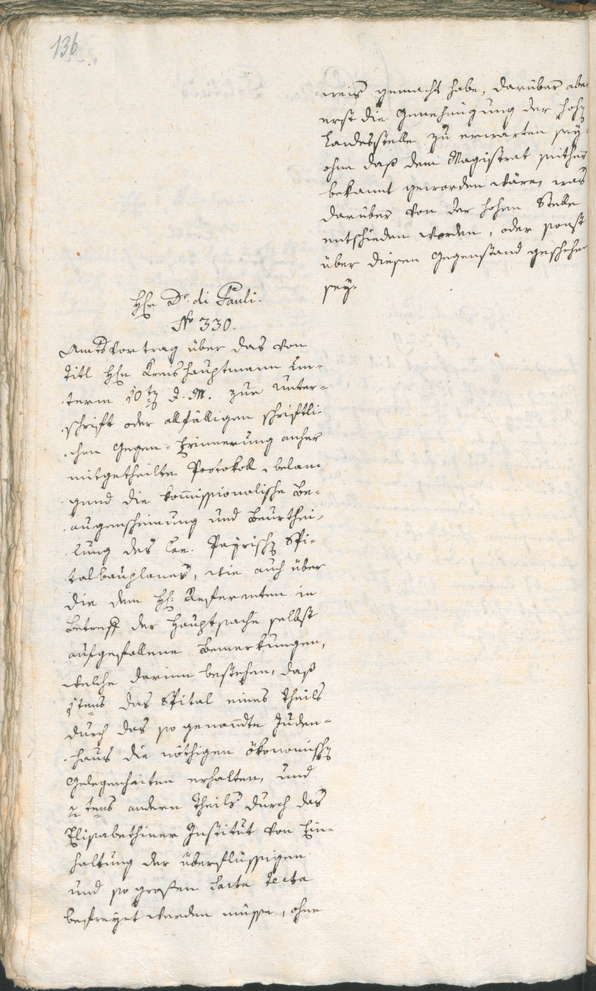 136.
weis gemacht habe, darüber aber
erst die Genehmigung der hohen
Landesstelle zu erwarten sey,
ohne daß dem Magistrat seither
bekannt geworden wäre, was
darüber von der hohen Stelle
entschieden worden, oder sonst
über diesen Gegenstand geschehen
sey.
Hh. Dr. di Pauli.
No 330.
Amtsvortrag über das von
Titl Hh. Kreishauptmann un-
term 10ten d. M. zur Unter-
schrift oder allfälligen schriftli-
chen Gegen-Erinnerung anher
mitgetheilte Protokoll, belan-
gend die kommissionalische Be-
augenscheinung und Beurthei-
lung des Spi-
talbauplanes, wie auch über
die dem Hh. Referenten in
Betreff der Hauptsache selbst
aufgefallene Bemerkungen,
welche darinn bestehen, daß
1tens das Spital eines Theils
durch das so genannte Juden-
haus die nöthigen ökonomischen
Gelegenheiten erhalten, und
2tens andern Theils durch das
Elisabethiner Institut von Ein-
haltung der überflüssigen
und so großen Sarta tecta
befreyet werden müsse, ohne